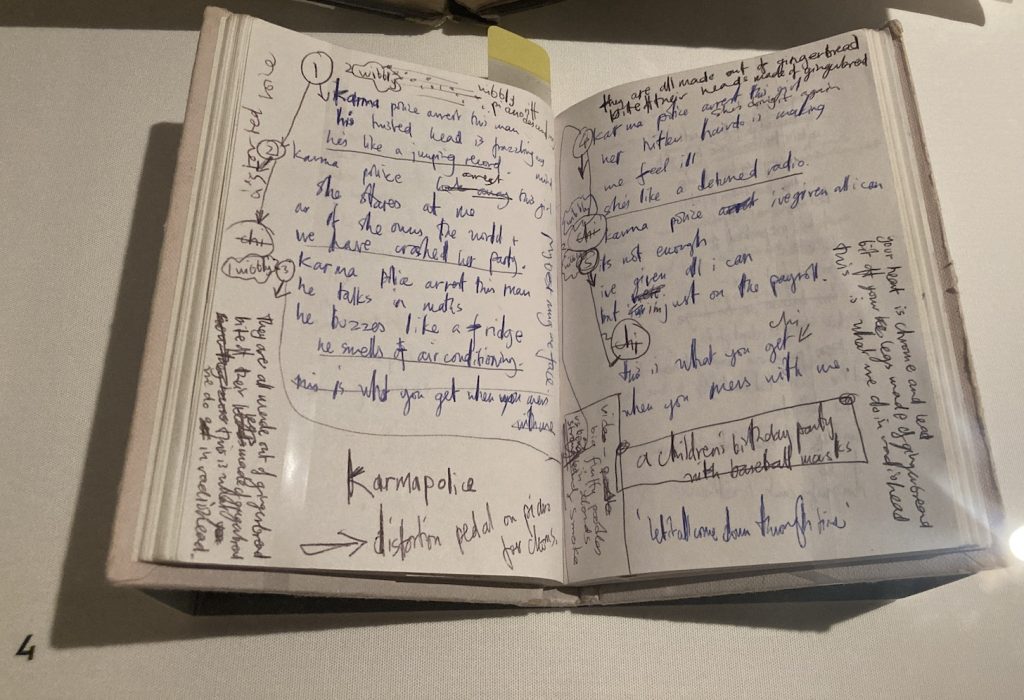 1
2 wibbly
wibbly
Karma police arrest this man
his twisted head is frazzling my mind
he's like a jumping record.
2
karma police arrest this girl
she stares at me
as if she owns the world +
we have crashed her party.
1 wibbly
3
Karma police arrest this man
he talks in maths
he buzzes like a fridge
he smells of air conditioning.
this is what you get when you mess
with me
Karmapolice
distortion pedal on piano
for drums.
voice
they are all made out of gingerbread
bite off their
made of gingerbread
this is what
she do in radiohead.
they are all made out of gingerbread
bite off their heads made of gingerbread
4
karma police arrest this girl
she's tonight again
her hitler hairdo is making
me feel ill
shes like a detuned radio.
wibbly
karma police ive given all i can
5
its not enough
ive given all i can
but im just on the payroll.
this is what you get
when you mess with me.
a children's birthday party
with baseball masks
'let it all come down through time'
video -
big
clouds
smoke
your head is chrome and lead
bit off your legs made of gingerbread
this is what we do in radiohead
4